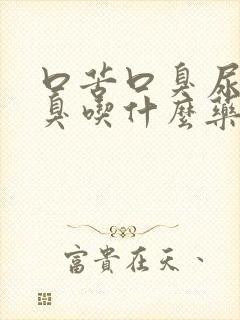 口苦口臭尿
臭喫什麼藥
富貴在天、